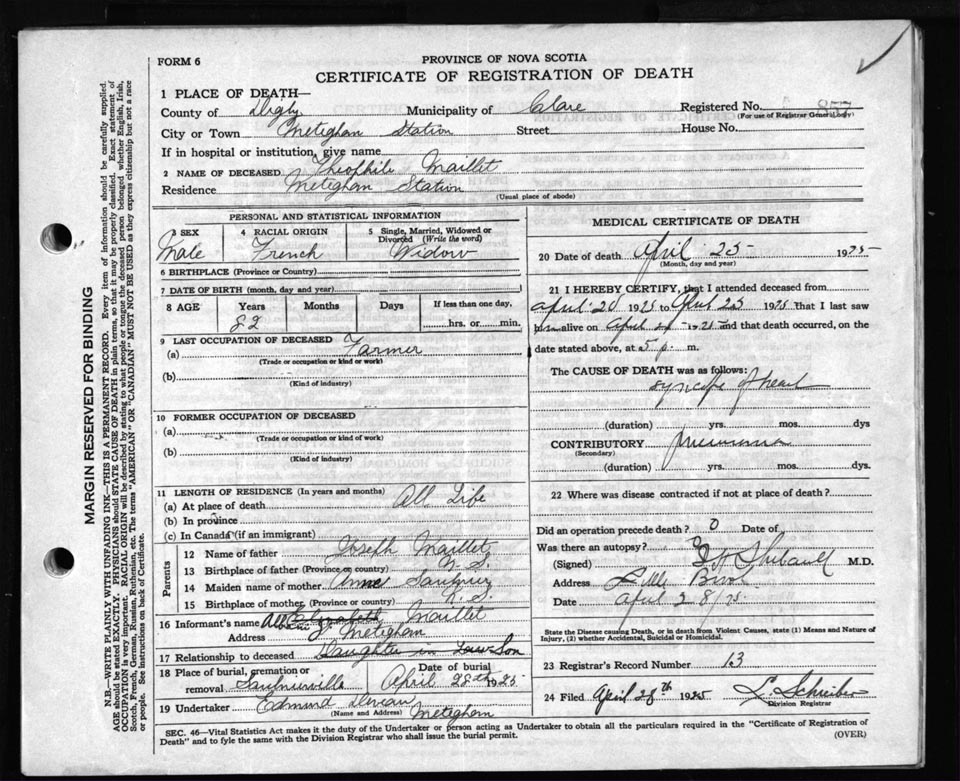 FORM 6
PROVINCE OF NOVA SCOTIA
CERTIFICATE OF REGISTRATION OF DEATH
1 PLACE OF DEATH—
County of Digby Municipality of Clare Registered No. 857
(For use of Registrar General only)
City or Town Meteghan Station Street House No.
If in hospital or institution, give name
2 NAME OF DECEASED Theophile Maillet
Residence Meteghan Station
(Usual place of abode)
PERSONAL AND STATISTICAL INFORMATION
3 SEX 4 RACIAL ORIGIN 5 Single, Married, Widowed or Divorced (Write the word)
Male French Widow
6 BIRTHPLACE (Province or Country)
7 DATE OF BIRTH (month, day and year)
8 AGE Years Months Days If less than one day,
82 hrs. or min.
9 LAST OCCUPATION OF DECEASED
(a) Farmer
(Trade or occupation or kind or work)
(b)
(Kind of industry)
10 FORMER OCCUPATION OF DECEASED
(a)
(Trade or occupation or kind of work)
(b)
(Kind of industry)
11 LENGTH OF RESIDENCE (In years and months)
(a) At place of death All Life
(b) In province
(c) In Canada (if an immigrant)
Parents
12 Name of father Joseph Maillet
13 Birthplace of father (Province or country) N.S.
14 Maiden name of mother Anne Saulnier
15 Birthplace of mother (Province or country) N.S.
16 Informant's name Maillet
Address Meteghan
17 Relationship to deceased Daughter in Law Son
18 Place of burial, cremation or removal Saulnierville Date of burial April 28th 1925
19 Undertaker Edmund Deveau
(Name and Address) Meteghan
MEDICAL CERTIFICATE OF DEATH
20 Date of death April 25 1925
(Month, day and year)
21 I HEREBY CERTIFY, that I attended deceased from
April 20 1925 to April 25 1925 that I last saw
him alive on April and that death occurred, on
date stated above, at 5 p. m.
The CAUSE OF DEATH was as follows:
syncope of heart
(duration) yrs. mos. dys
CONTRIBUTORY pneumonia
(Secondary)
(duration) yrs. mos. dys.
22 Where was disease contracted if not at place of death?
Did an operation precede death? 0 Date of
Was there an autopsy? 0
(Signed) Thibault M.D.
Address Little Brook
Date April 28/25.
State the Disease causing Death, or in death from Violent Causes, state (1) Means and Nature of Injury, (2) whether Accidental, Suicidal or Homicidal.
23 Registrar's Record Number 13
24 Filed April 28th 1925 L. Schreiber
Division Registrar
SEC. 46—Vital Statistics Act makes it the duty of the Undertaker or person acting as Undertaker to obtain all the particulars required in the "Certificate of Registration of
Death" and to fyle the same with the Division Registrar who shall issue the burial permit.
(OVER)
MARGIN RESERVED FOR BINDING
N.B.—WRITE PLAINLY WITH UNFADING INK—THIS IS A PERMANENT RECORD. Every item of information should be carefully supplied.
AGE should be stated EXACTLY. PHYSICIANS should STATE CAUSE OF DEATH in plain terms, so that it may be properly classified. Exact statement of
OCCUPATION is very important. RACIAL ORIGIN will be described by stating to what people or tongue the deceased person belonged whether English, Irish,
Scotch, French, German, Russian, Ruthenian, etc. The terms "AMERICAN" OR "CANADIAN" MUST NOT BE USED as they express citizenship but not a race
or people. See instructions on back of Certificate.